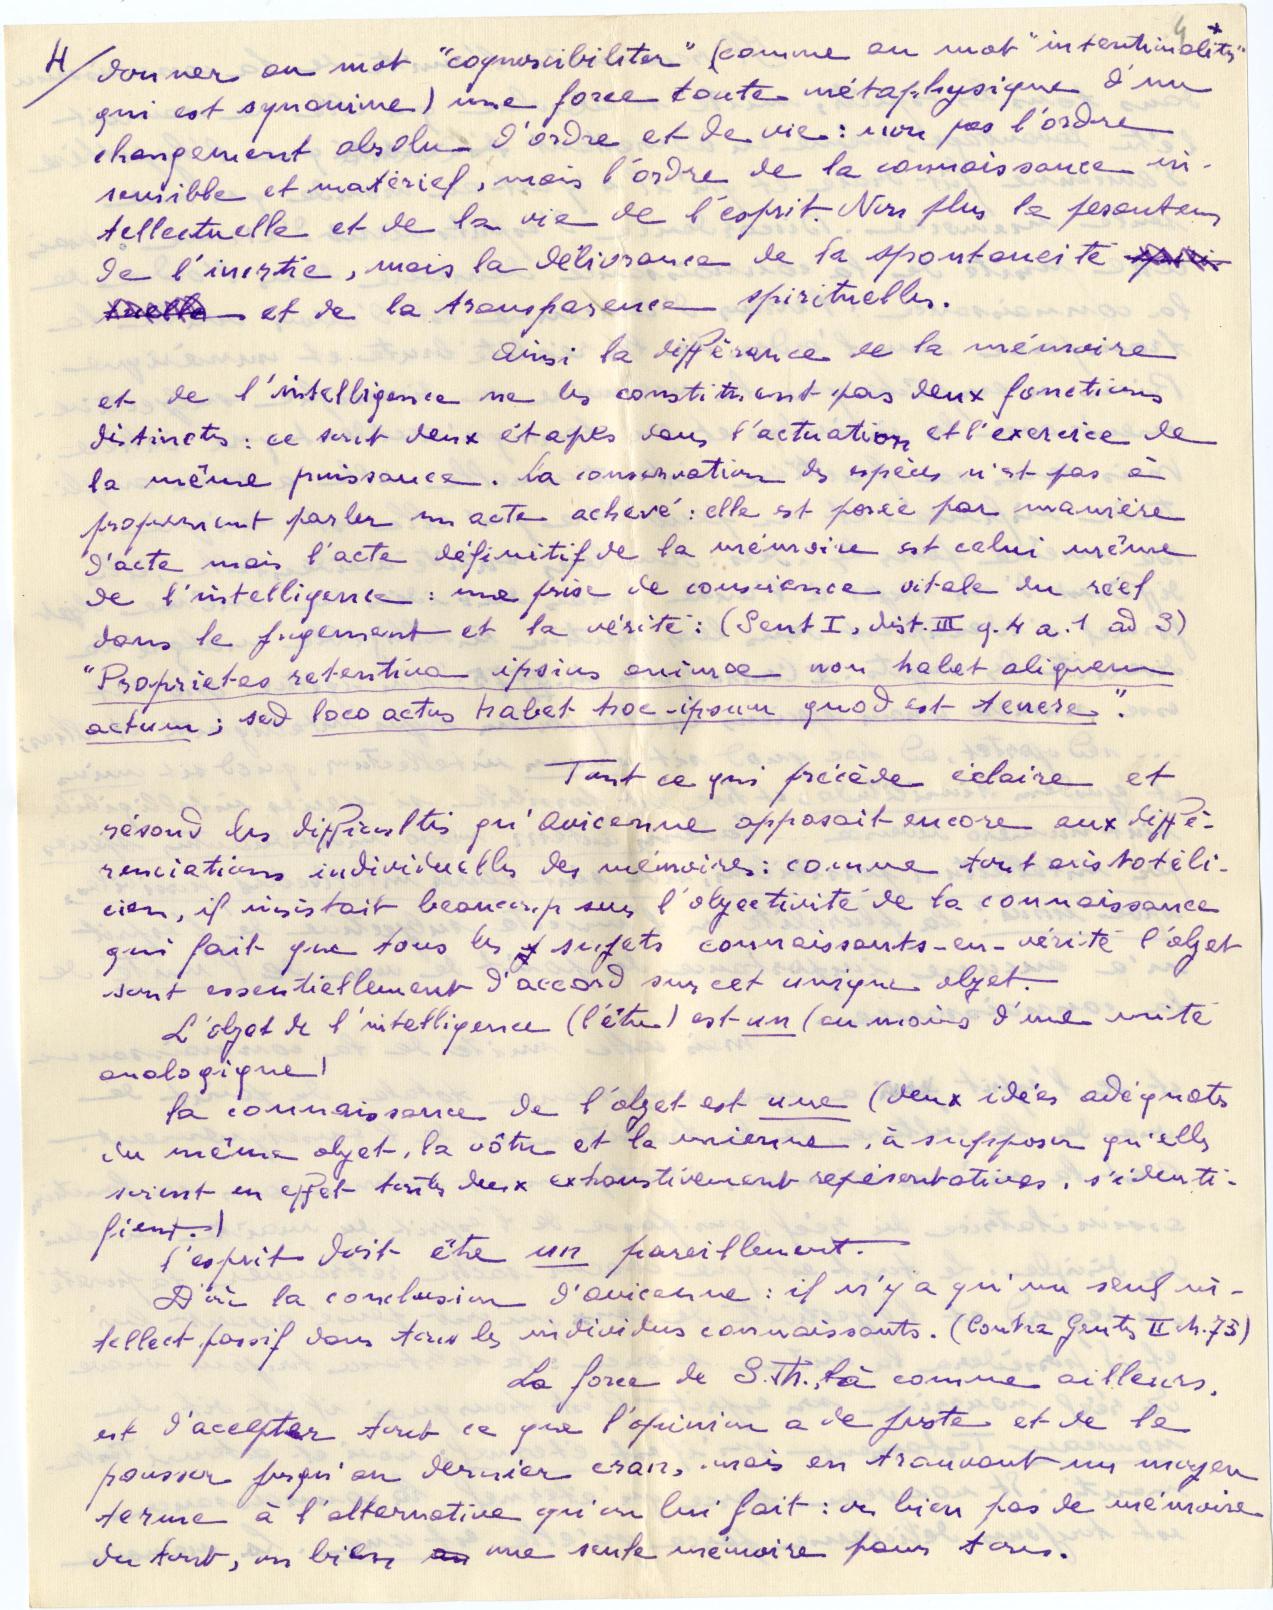 4/ donner au mot "cognoscibiliter" (comme au mot "intentionalitas"
qui est synonime) une force toute métaphysique d'un
changement absolu d'ordre et de vie : non pas l'ordre
sensible et matériel, mais l'ordre de la connaissance in-
tellectuelle et de la vie de l'esprit. Non plus la pesanteur
de l'inertie, mais la délivrance de la spontaneité
et de la transparence spirituelles.
Ainsi la différence de la mémoire
et de l'intelligence ne les constituent pas deux fonctions
distinctes : ce sont deux étapes dans l'actuation et l'exercice de
la même puissance. La conservation des espèces n'est pas à
proprement parler un acte achevé : elle est posée par manière
d'acte mais l'acte définitif de la mémoire est celui même
de l'intelligence : une prise de conscience vitale du réel
dans le jugement et la vérité : (Sent I, dist. III q. 4 a. 1 ad 3)
"Proprietas retentiva ipsius animae non habet aliquem
actum ; sed loco actus habet hoc ipsum quod est tenere".
Tout ce qui précède éclaire et
résoud les difficultés qu'Avicenne opposait encore aux diffé-
renciations individuelles des mémoires : comme tout aristotéli-
cien, il insistait beaucoup sur l'objectivité de la connaissance
qui fait que tous les sujets connaissants-en-vérité l'objet
sont essentiellement d'accord sur cet unique objet.
L'objet de l'intelligence (l'être) est un (au moins d'une unité
analogique)
La connaissance de l'objet est une (deux idées adéquates
du même objet, la vôtre et la mienne, à supposer qu'elles
soient en effet toutes deux exhaustivement représentatives, s'identi-
fient.)
L'esprit doit être un pareillement.
D'où la conclusion d'Avicenne : il n'y a qu'un seul in-
tellect passif dans tous les individus connaissants. (Contra Gentes II ch. 73)
La force de S. Th., là comme ailleurs,
est d'accepter tout ce que l'opinion a de juste et de la
pousser jusqu'au dernier cran, mais en trouvant un moyen
terme à l'alternative qu'on lui fait : ou bien pas de mémoire
du tout, ou bien une seule mémoire pour tous.